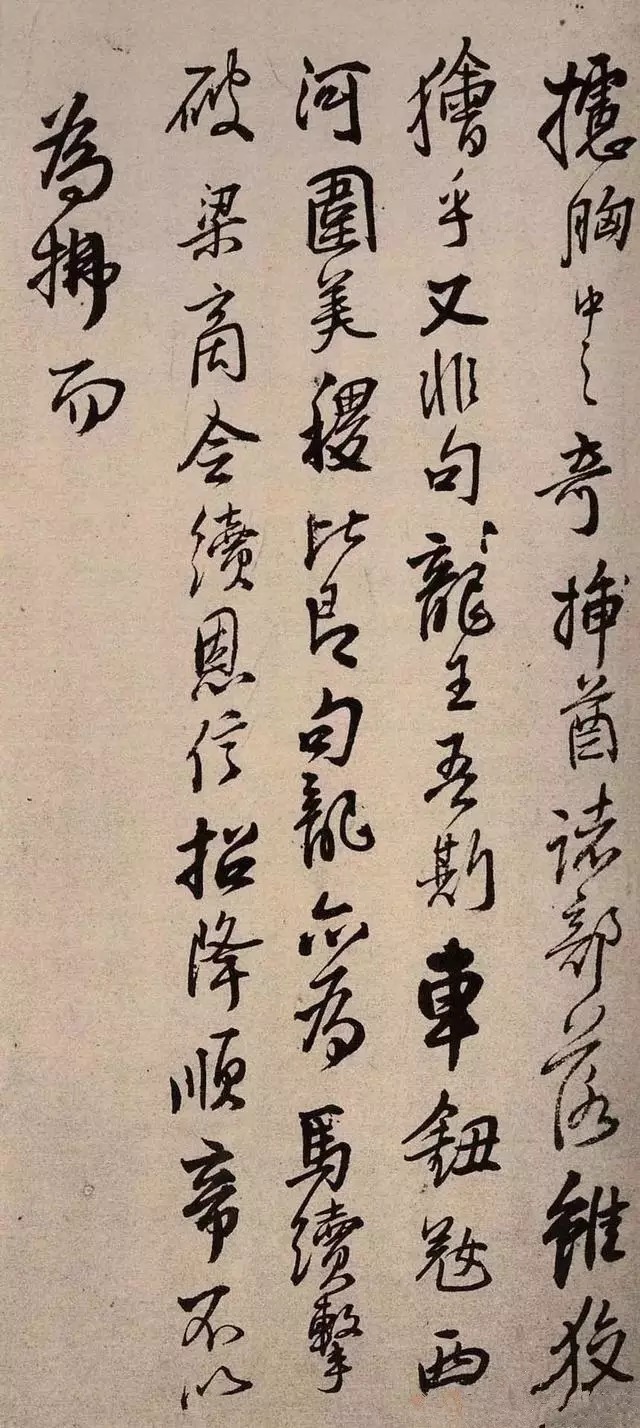 攄胸中之奇捕酋諸部落雖狡
獪乎又非句龍王吾斯車鈕寇西
河圍美稷比句龍亦為馬續擊
破梁商令續恩信招降順帝不以
為拂而